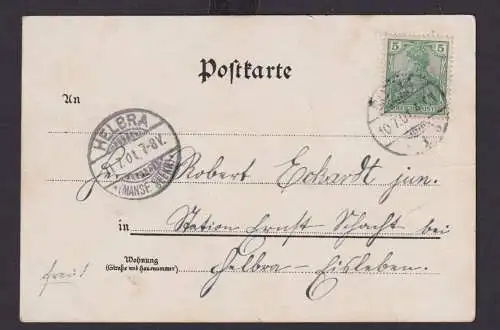 Postkarte
5 5
An
HELBRA
11.7.01.7-8V.
*(MANSF. SEEKR)*
10.7.01
1
Herrn Robert Eckardt jun.
in Station Ernst Schacht bei
Wohnung
(Straße und Hausnummer)
Helbra-Eisleben.
frei!